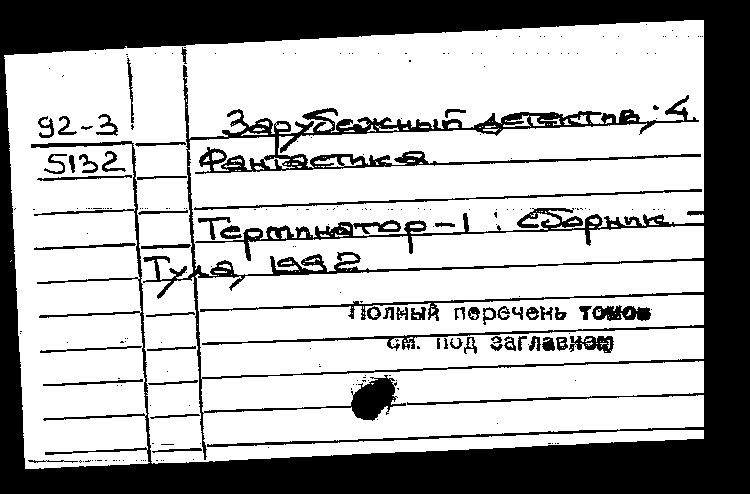 92-3 Зарубежный детектив; 4.
5132 Фантастика.
Терминатор-1 : Сборник. -
Тула, 1992.
Полный перечень томов
см. под заглавием